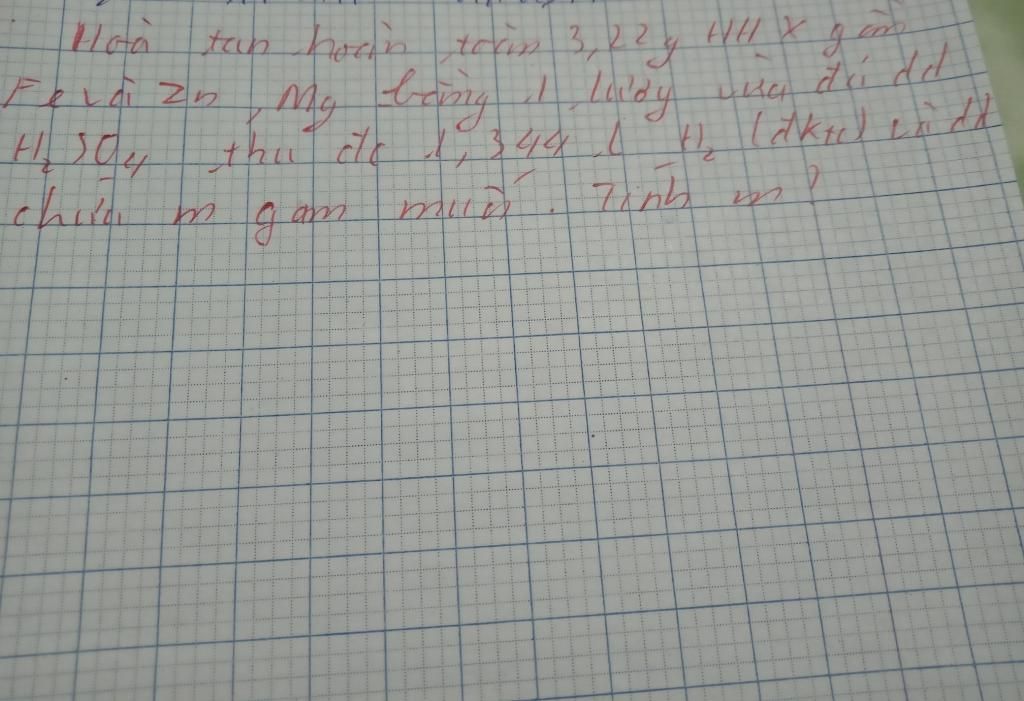 Hoà tan hoàn toàn 3,22g HH X gồm
Fe và Zn, Mg bằng 1 lượng vừa đủ dd
H₂SO₄ thu đc 1,344 l H₂ (đktc) và dd
chứa m gam muối. Tính m?